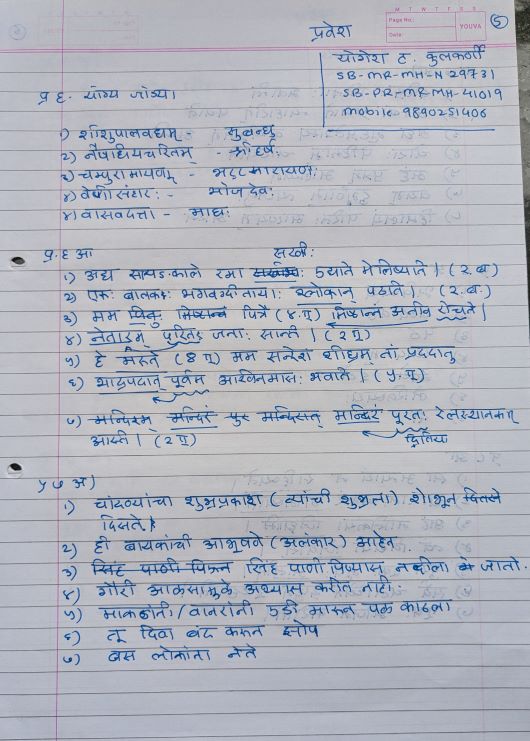 M T W T F S S
Page No.:
Date:
YOUVA
5
प्रवेश
योगेश ट. कुलकर्णी
SB-MR-MH-N 29731
SB-PR-MR-MH-41019
mobile-9890251406
प्र ६. योग्य जोड्या
१) शिशुपालवधम् - सुबन्धु
२) नैषधीयचरितम् - श्री हर्षः
३) चम्पुरामायणम् - भट्टनारायणः
४) वेणीसंहारः - भोजदेवः
५) वासवदत्ता - माघः
प्र. ६ आ सखीः
१) अद्य सायङ्काले रमा मेलिष्यति। (२.ब)
२) एकः बालकः भगवद्गीतायाः श्लोकान् पठति। (२.ब.)
३) मम पितुः मिष्टान्नं पित्रे (४.ए) मिष्टान्नं अतीव रोचते।
४) परितः जनाः सन्ति। (२ए)
५) हे मरुते (8 ए) मम सन्देशं शीघ्रम् तां प्रददातु
६) भाद्रपदात् पूर्वम् आश्विनमासः भवति। (५.ए)
७) मन्दिरम् मन्दिरं पुर मन्दिरात् मन्दिरं पुरतः रेलस्थानकम्
अस्ति। (२ए) द्वितिया
अ)
१) चांदण्यांचा शुभ्रप्रकाश (त्यांची शुभ्रता) शोभून
दिसते.
२) ही बायकांची आभूषणे (अलंकार) आहेत.
३) सिंह पाणी पिऊन सिंह पाणी पिण्यास नदीला जातो.
४) गौरी आळसामुळे अभ्यास करीत नाही.
५) माकडांनी/वानरांनी उडी मारून पळ काढला
६) तू दिवा बंद करून झोप
७) बस लोकांना नेते